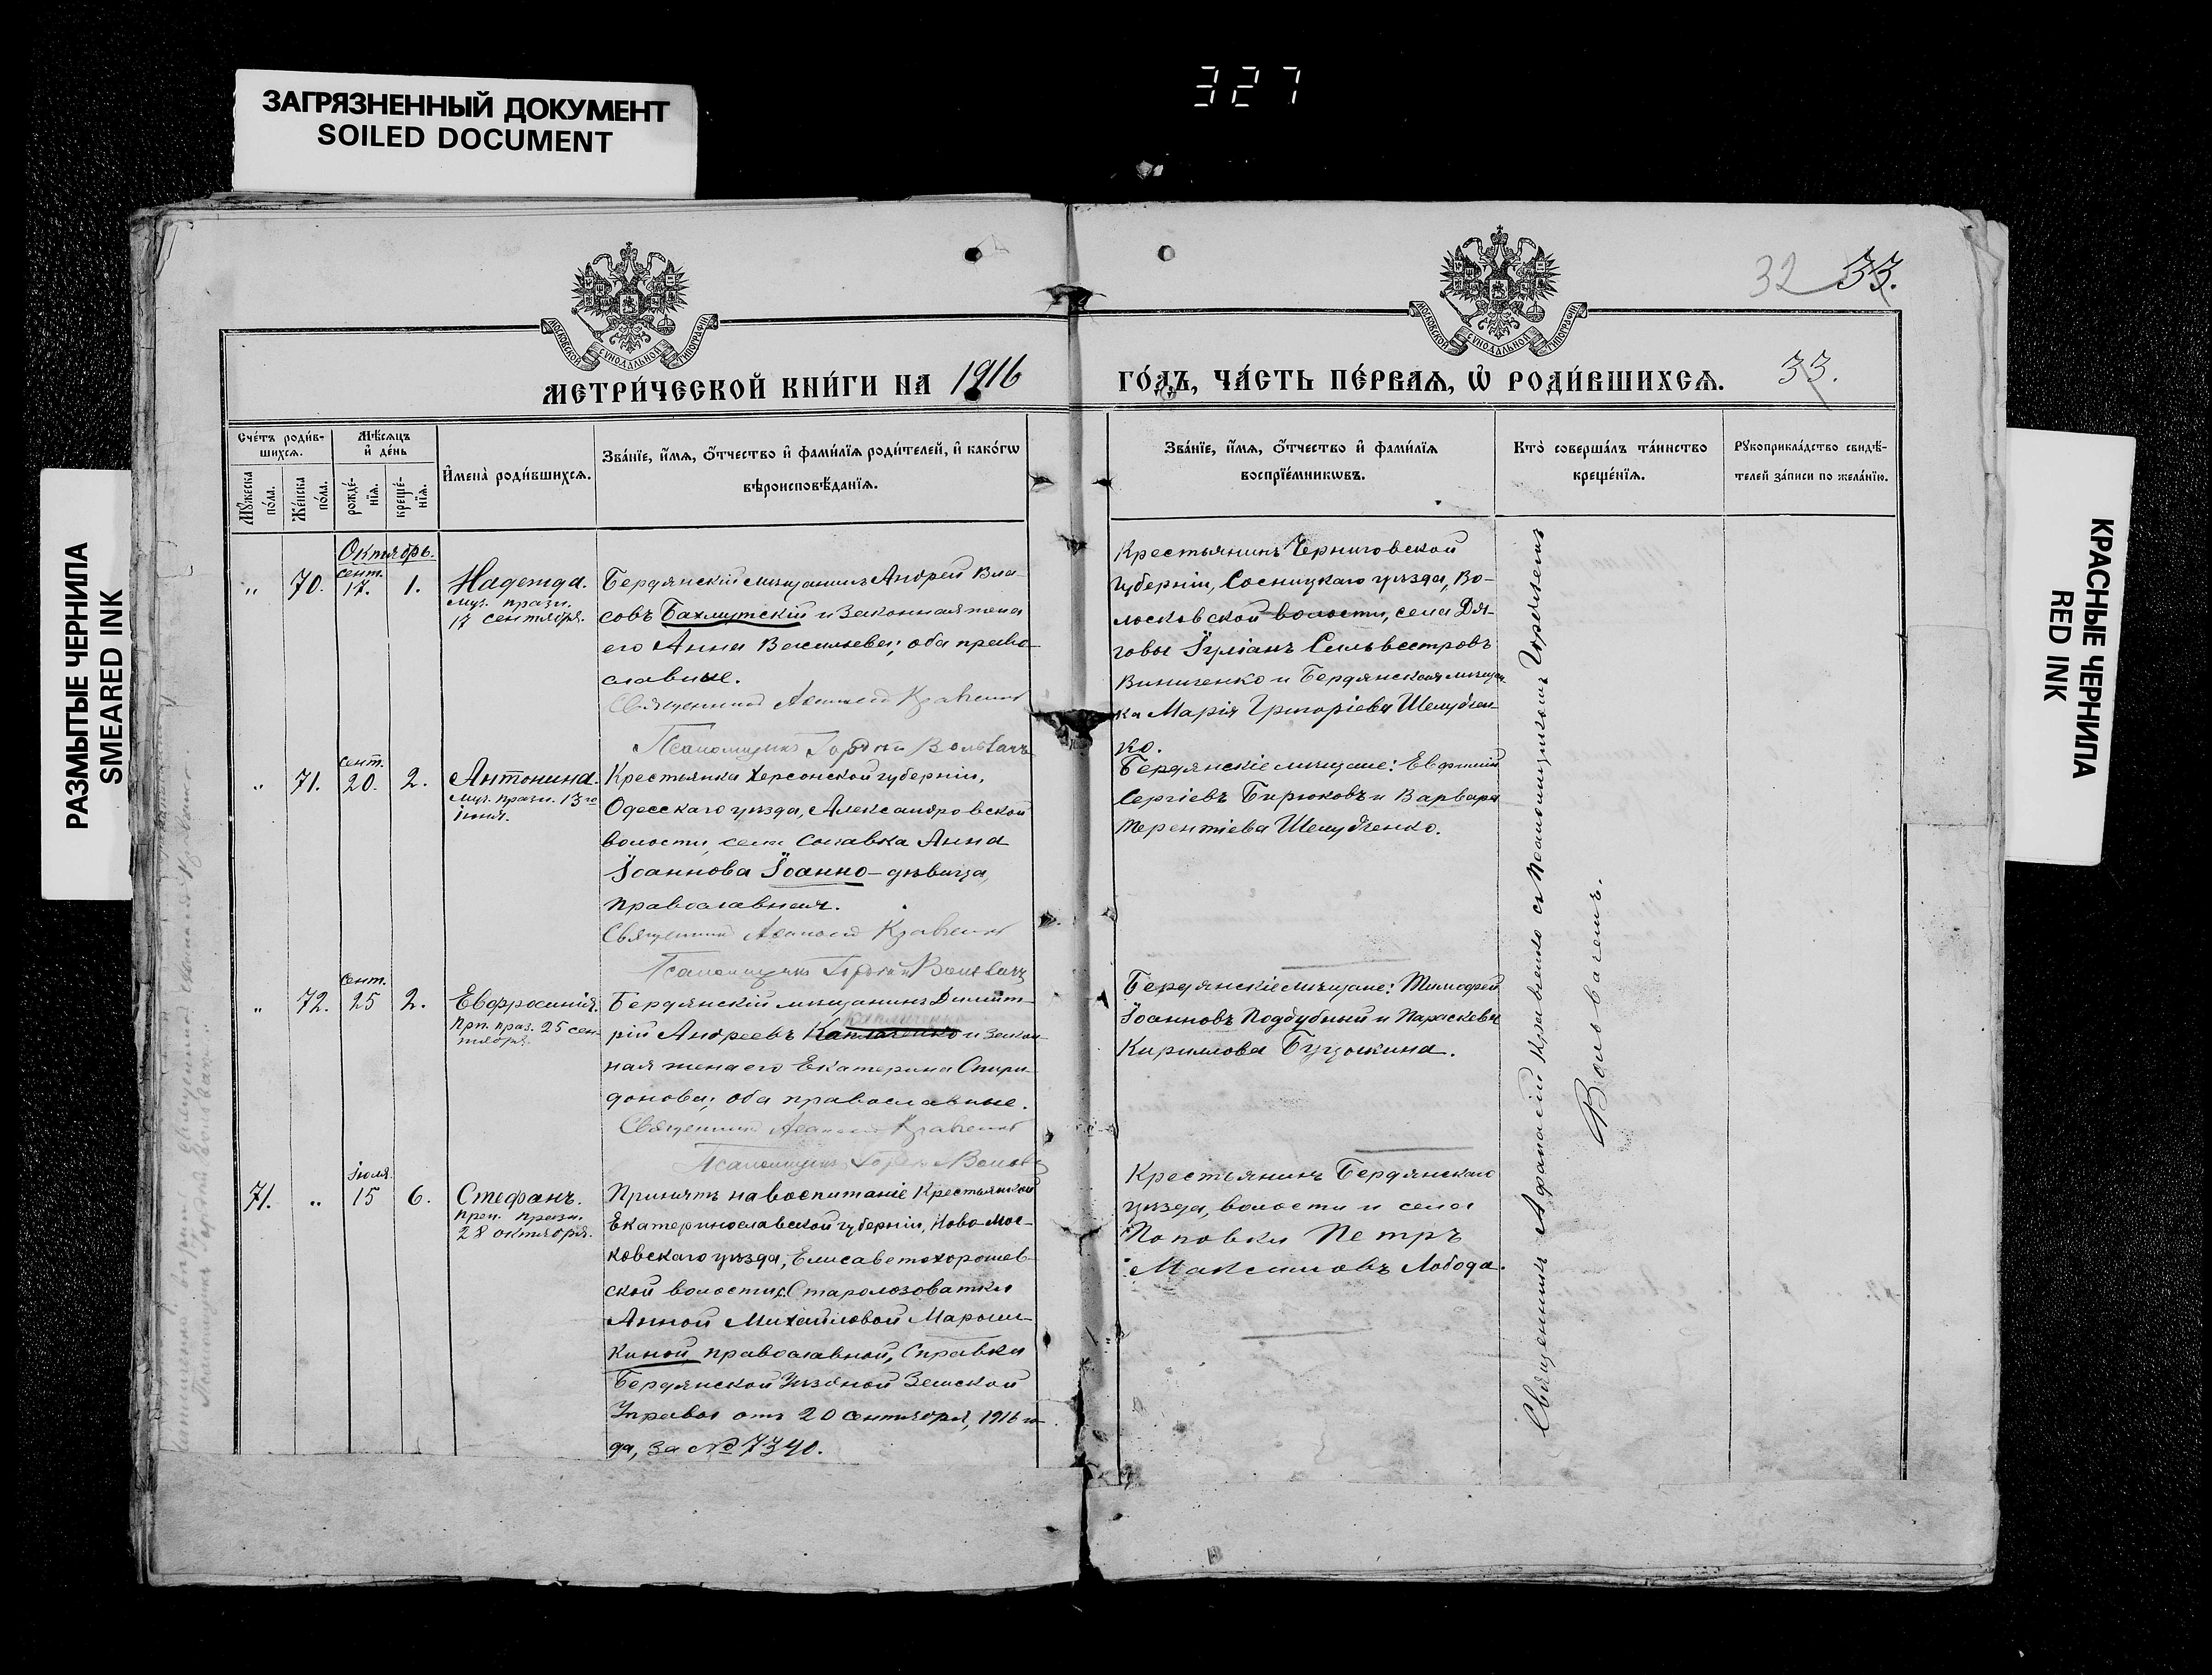 327
ЗАГРЯЗНЕННЫЙ ДОКУМЕНТ
SOILED DOCUMENT
РАЗМЫТЫЕ ЧЕРНИЛА
SMEARED INK
КРАСНЫЕ ЧЕРНИЛА
RED INK
МОСКОВСКОЙ СѴНОДАЛЬНОЙ ТИПОГРАФІИ
МОСКОВСКОЙ СѴНОДАЛЬНОЙ ТИПОГРАФІИ
32 33.
МЕТРИ́ЧЕСКОЙ КНИ́ГИ НА 1916
ГО́ДЪ, ЧА́СТЬ ПЕ́РВАѦ, Ѡ҆ РОДИ́ВШИХСѦ. 33.
Сче́тъ роди́в-
шихсѧ.
Мꙋ́жеска по́ла.
Же́нска по́ла.
Мѣ́сѧцъ и҆ де́нь
рожде́-
нїѧ.
креще́-
нїѧ.
И҆мена̀ роди́вшихсѧ.
Зва́нїе, и҆́мѧ, ѻ҆́тчество и҆ фами́лїѧ роди́телей, и҆ како́гѡ
вѣроисповѣ́данїѧ.
Зва́нїе, и҆́мѧ, ѻ҆́тчество и҆ фами́лїѧ
воспрїе́мникѡвъ.
Кто̀ соверша́лъ та́инство
креще́нїѧ.
Рꙋкоприкла́дство свидѣ́-
телей за́писи по жела́нїю.
Октябрь.
" 70. сент. 17. 1. Надежда.
муч. празн.
17 сентября.
Бердянскій мѣщанинъ Андрей Вла-
совъ Бахмутскій и законная жена
его Анна Васильева; оба право-
славные.
Священникъ Аѳанасій Кравченко
Псаломщикъ Гордій Вольвачъ
Крестьянинъ Черниговской
губерніи, Сосницкаго уѣзда, Во-
лосковской волости, села Дя-
говы Іуліанъ Сильвестровъ
Виниченко и Бердянская мѣщан-
ка Марія Григоріева Шелудчен-
ко.
" 71. сент. 20. 2. Антонина.
муч. празн. 13го
іюня.
Крестьянка Херсонской губерніи,
Одесскаго уѣзда, Александровской
волости, села Анна
Іоаннова Іоанно - дѣвица,
православная.
Священникъ Аѳанасій Кравченко
Псаломщикъ Гордій Вольвачъ
Бердянскіе мѣщане: Евфимій
Сергіевъ Бирюковъ и Варвара
Терентіева Шелудченко.
" 72. сент. 25 2. Евфросинія.
прп. праз. 25 сен-
тября.
Бердянскій мѣщанинъ Димит-
рій Андреевъ и закон-
ная жена его Екатерина Спири-
донова; оба православные.
Священникъ Аѳанасій Кравченко
Псаломщикъ Гордій
Бердянскіе мѣщане: Тимофей
Іоанновъ Поддубный и Параскева
Кириллова Бугцокина.
71. " іюля 15 6. Стефанъ.
преп. празн.
28 октября.
Принятъ на воспитаніе Крестьянкой
Екатеринославской губерніи, Ново-мос-
ковскаго уѣзда, Елисаветохорошев-
ской волости, с. Старолозоватки
Анной Михайловой Марош-
киной, православной, Справка
Бердянской Уѣздной Земской
Управы отъ 20 сентября, 1916 го-
да, за № 7340.
Крестьянинъ Бердянскаго
уѣзда, волости и села
Поповки Петръ
Максимовъ Лобода.
Священникъ Афанасій Кравченко съ псаломщикомъ Гордѣемъ
Вольвачемъ.